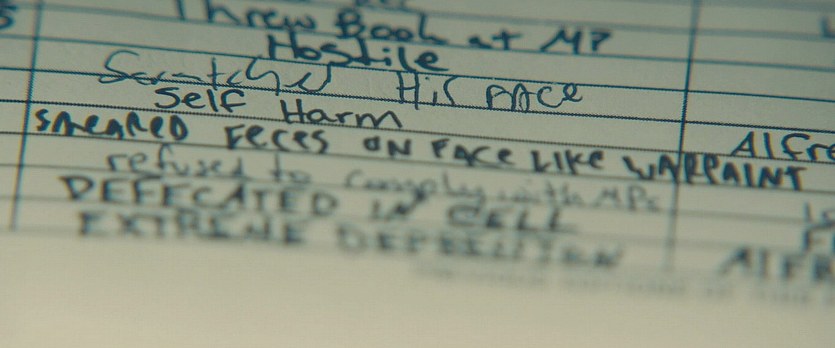 Threw Book at MP
Hostile
Scratched His FACE
Self Harm
SMEARED FECES ON FACE LIKE WARPAINT
Alfre
refused to comply with MPs
DEFECATED IN CELL
EXTREME DEPRESSION
AlFR